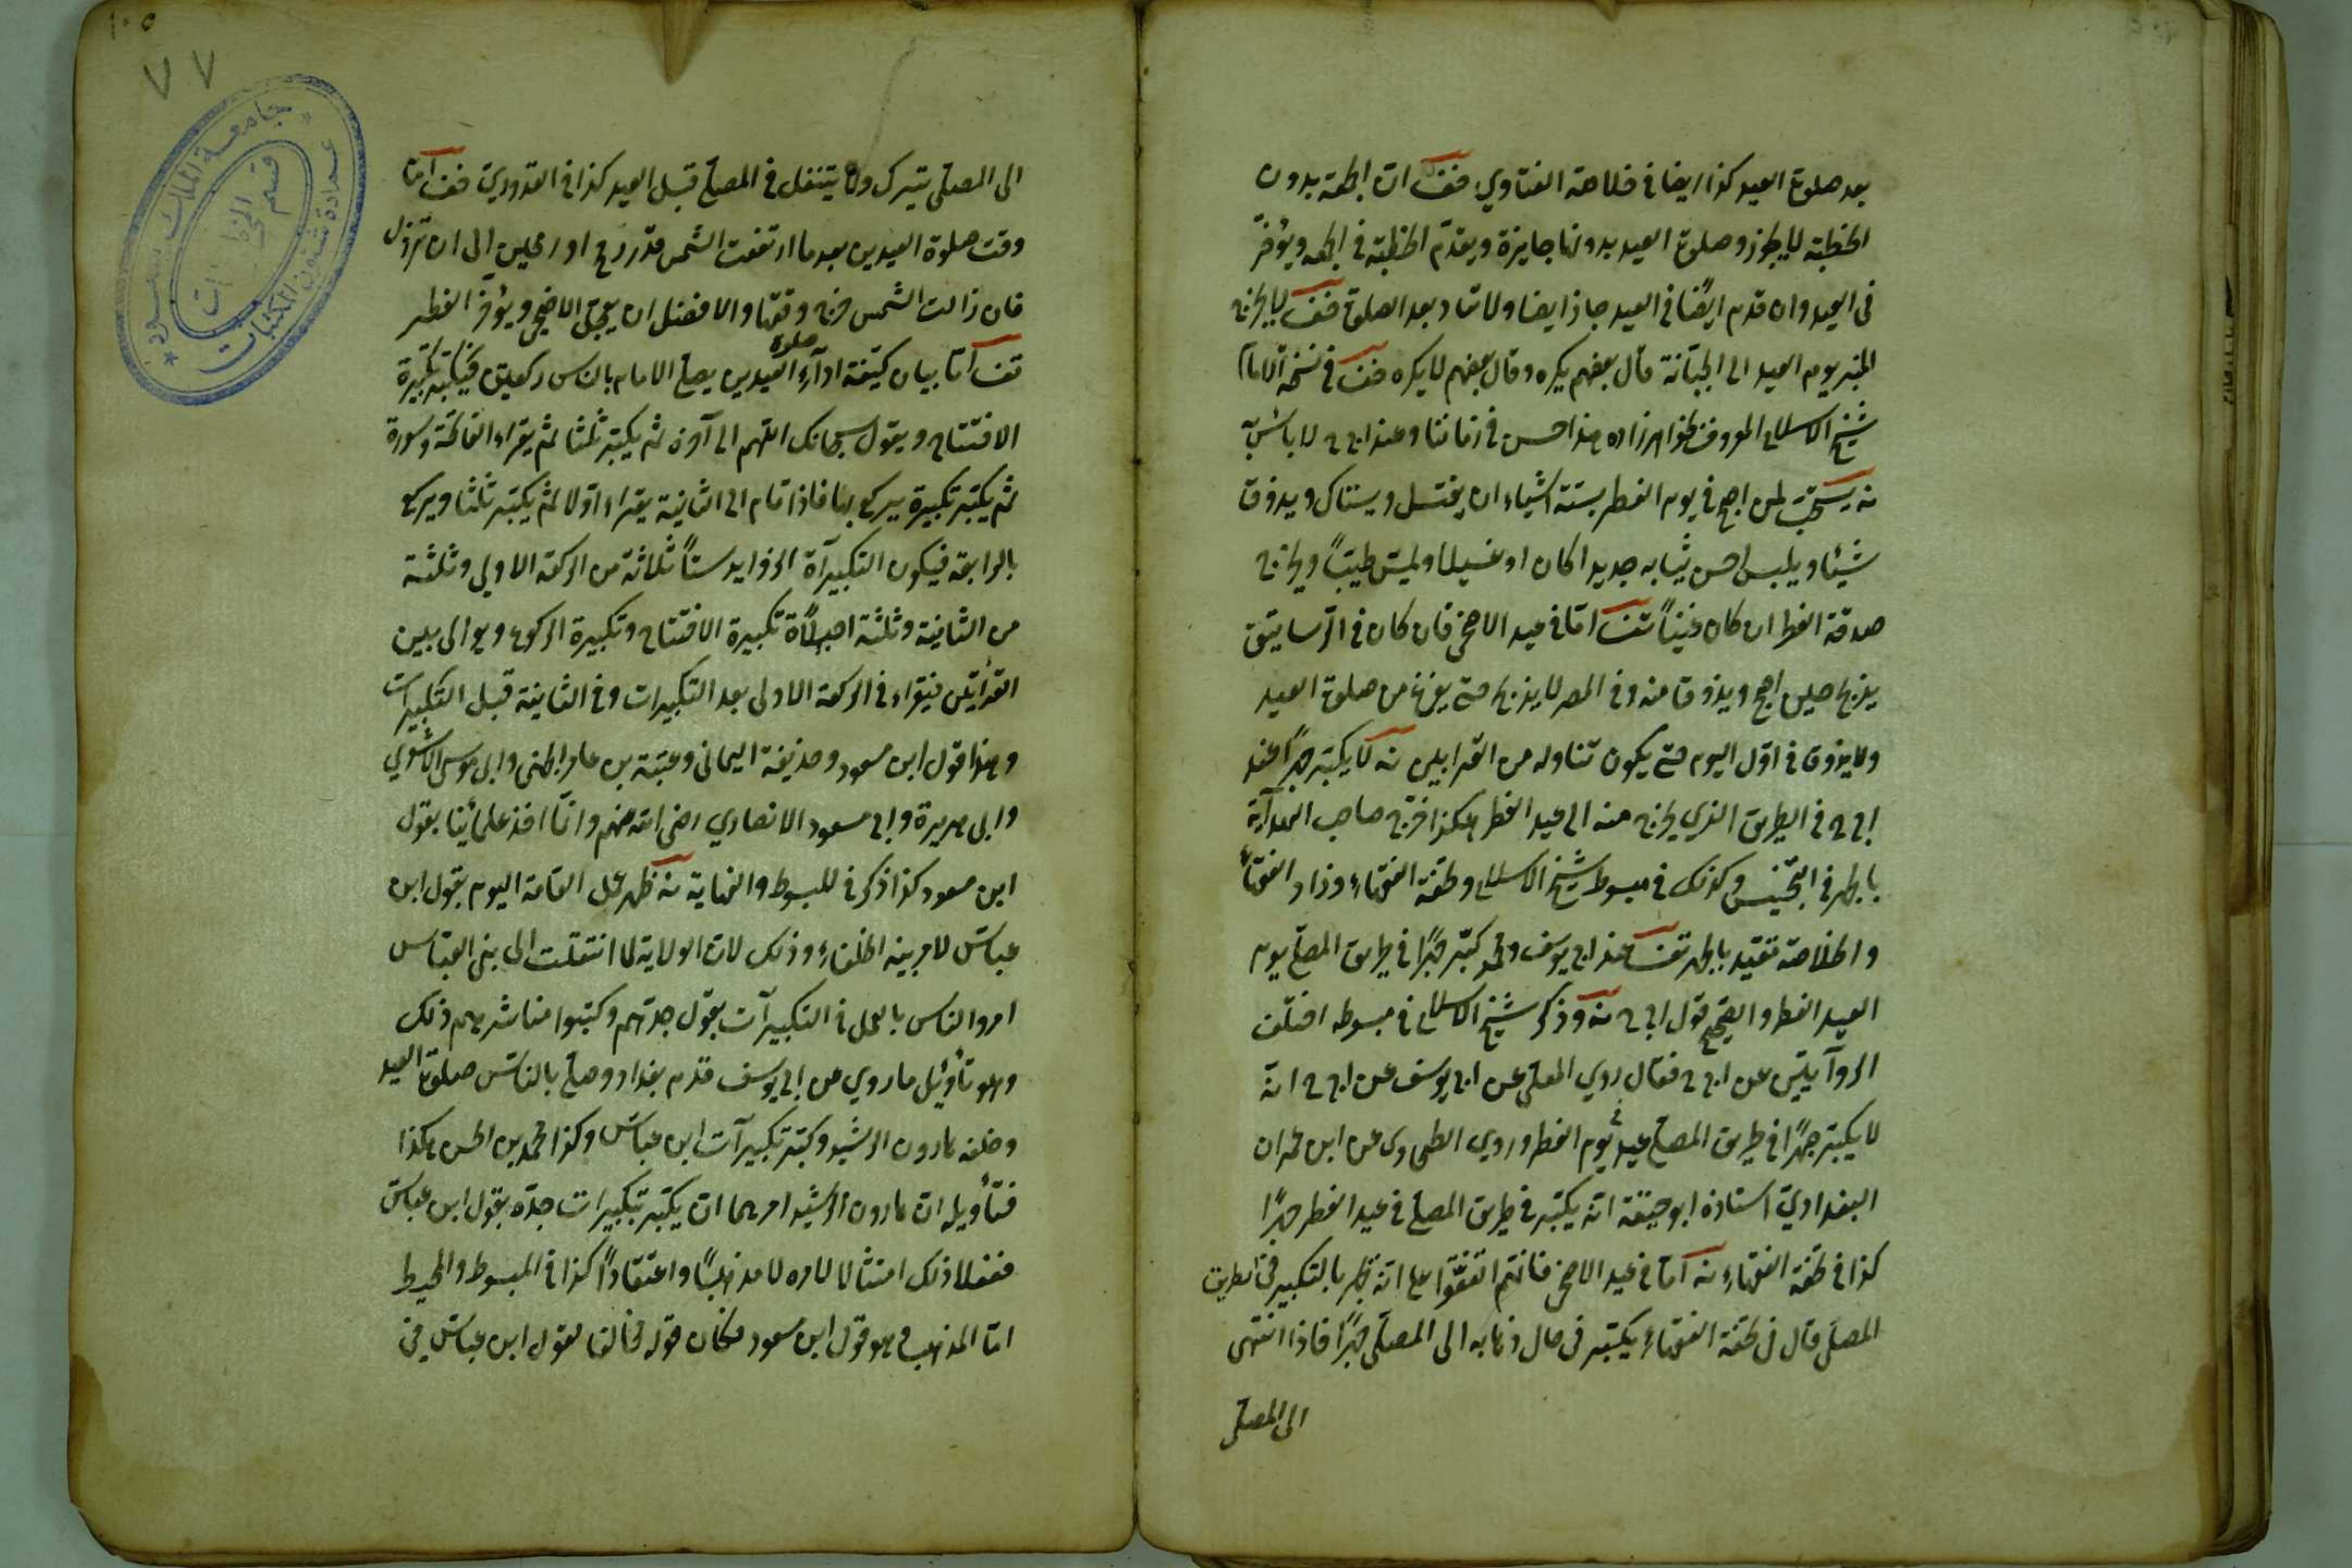 بعد صلوة العيد كذا ايضا في خلاصة الفتاوي فف ان الجمعة بدون
الخطبة لا يجوز وصلوة العيد بدونها جايزة ويقدم الخطبة في الجمعه ويؤخر
في العيد وان قدم ايضا في العيد جاز ايضا ولا تعاد بعد الصلوة فف لا يخرج
المنبر يوم العيد الى الجبّانة قال بعضهم يكره وقال بعضهم لا يكره فف في نسخة الامام
شيخ الاسلام المعروف بخواهر زاده هذا حسن في زماننا وعند ابي ح لا بأس به
نه يستحب لمن اصبح في يوم الفطر بستة اشياء ان يغتسل ويستاك ويذوق
شيئا ويلبس احسن ثيابه جديدا كان او غسيلا ويمس طيبًا ويخرج
صدقة الفطر ان كان غنيًا تف امّا في عيد الاضحى فان كان في الرساتيق
يذبح حين اصبح ويذوق منه وفي المصر لا يذبح حتى يفرغ من صلوة العيد
ولا يذوق في اوّل اليوم حتى يكون تناوله من القرابين نه لا يكبّر جهرًا عند
ابي ح في الطريق الذي يخرج منه الى عيد الفطر هكذا فرّج صاحب الهدآية
بالجهر في التجنيس وكذلك في مبسوط شيخ الاسلام وتحفة الفقهاء وزاد الفقهاء
والخلاصة تقيد بالجهر تف عند ابي يوسف ومحمد كبّر جهرًا في طريق المصلى يوم
العيد الفطر والصحيح قول ابي ح نه وذكر شيخ الاسلام في مبسوطه اختلف
الروآيتين عن ابي ح فقال روي المعلى عن ابي يوسف عن ابي ح انه
لا يكبّر جهرًا في طريق المصلى في عيد يوم الفطر وروي الطحاوي عن ابن عمران
البغدادي استاذه ابو حنيفة انه يكبّر في طريق المصلى في عيد الفطر جهرًا
كذا في تحفة الفقهاء نه آمّا في عيد الاضحى فانّهم اتفقّوا على انه يجهر بالتكبير في الطريق
المصلى قال في تحفة الفقهاء يكبّر في حال ذهابه الى المصلّى جهرًا فاذا انتهى
الى المصلى
١٠٥
٧٧
الى المصلّى يترك ولا يتنفل في المصلى قبل العيد كذا في القدوري فف آمّا
وقت صلوة العيدين بعد ما ارتفعت الشمس قدر رمح او رمحين الى ان تزول
فان زالت الشمس خرج وقتها والافضل ان يعجّل الاضحى ويؤخر الفطر
تف آمّا بيان كيفية ادآء صلوة العيدين يصلى الامام بالناس ركعتين فيكبّر تكبيرة
الافتتاح ويقول سبحانك اللهم الى آخره ثم يكبّر ثلثا ثم يقراء الفاتحة وسورة
ثم يكبّر تكبيرة يركع بها فاذا قام الى الثانية يقراء اوّلا ثم يكبّر ثلثا ويركع
بالرابعة فيكون التكبيرآة الزوايد ستًا ثلاثة من الركعة الاولى وثلثة
من الثانية وثلثة اصليّاة تكبيرة الافتتاح وتكبيرة الركوع ويوالى بين
القرأتين فيقراء في الركعة الاولى بعد التكبيرات وفي الثانية قبل التكبيرات
وهذا قول ابن مسعود وحذيفة اليمانى وعقبة بن عامر الجهنى وابى موسى الاشعري
وابى هريرة وابى مسعود الانصاري رضى الله عنهم وانّما اخذ علمائنا بقول
ابن مسعود كذا ذكر في المبسوط والنهاية نه ظهر عمل العامة اليوم بقول ابن
عباس لامر بنيه الخلفاء وذلك لان الولاية لما انتقلت الى بنى العباس
امروا الناس بالعمل في التكبيرآت بقول جدّهم وكتبوا مناشرهم ذلك
وهو تأويل ما روي عن ابي يوسف قدم بغداد وصلى بالناس صلوة العيد
وخلفه هارون الرشيد وكبّر تكبيرآت ابن عباس وكذا محمد بن الحسن هكذا
فتأويله ان هارون الرشيد امرهما ان يكبّر تكبيرات جدّه بقول ابن عباس
ففعلا ذلك امتثالا لامره لا مذهبًا واعتقادًا كذا في المبسوط والمحيط
امّا المذهب فهو قول ابن مسعود فكان قوله مخالفا لقول ابن عباس في
جامعة الملك سعود
عمادة شئون المكتبات
قسم المخطوطات